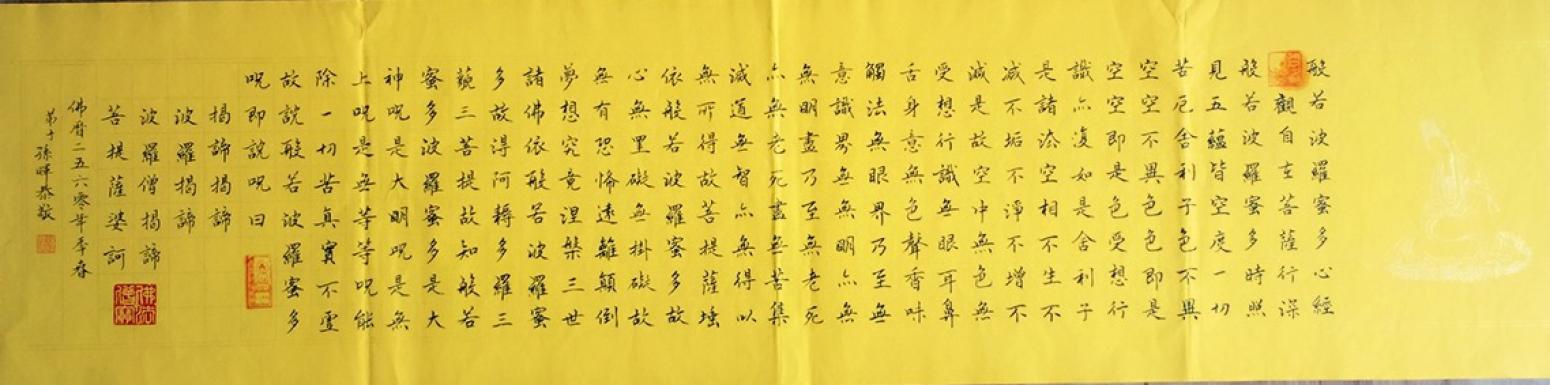 般若波羅蜜多心經
觀自在菩薩行深
般若波羅蜜多時照
見五蘊皆空度一切
苦厄舍利子色不異
空空不異色色即是
空空即是色受想行
識亦復如是舍利子
是諸法空相不生不
滅不垢不淨不增不
減是故空中無色無
受想行識無眼耳鼻
舌身意無色聲香味
觸法無眼界乃至無
意識界無無明亦無
無明盡乃至無老死
亦無老死盡無苦集
滅道無智亦無得以
無所得故菩提薩埵
依般若波羅蜜多故
心無罣礙無掛礙故
無有恐怖遠離顛倒
夢想究竟涅槃三世
諸佛依般若波羅蜜
多故得阿耨多羅三
藐三菩提故知般若
蜜多波羅蜜多是大
神呪是大明呪是無
上呪是無等等呪能
除一切苦真實不虛
故說般若波羅蜜多
呪即說呪曰
揭諦揭諦
波羅揭諦
波羅僧揭諦
菩提薩婆訶
佛法僧寶
佛曆二五六零年季春
弟子孫暉恭敬